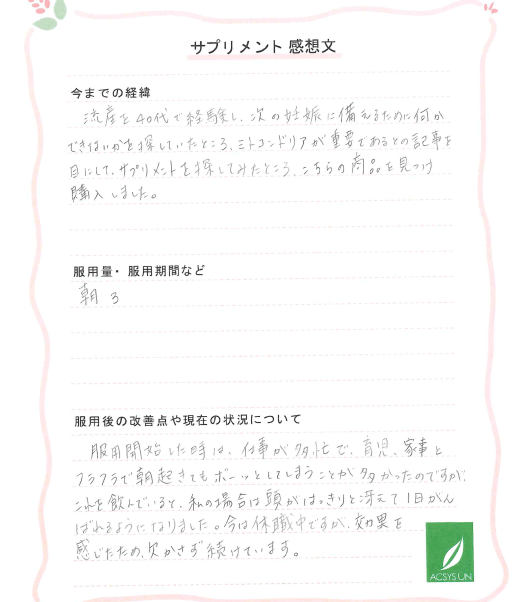 サプリメント 感想文
今までの経緯
流産を40代で経験し、次の妊娠に備えるために何か
できないかを探していたところ、ミトコンドリアが重要であるとの記事を
目にして、サプリメントを探してみたところ、こちらの商品を見つけ
購入しました。
服用量・服用期間など
朝 3
服用後の改善点や現在の状況について
服用開始した時は、仕事が多忙で、育児、家事と
フラフラで朝起きてもボーッとしてしまうことが多かったのですが、
これを飲んでいると、私の場合は頭がはっきりと冴えて1日がん
ばれるようになりました。今は休職中ですが、効果を
感じたため、欠かさず続けています。
ACSYSUN